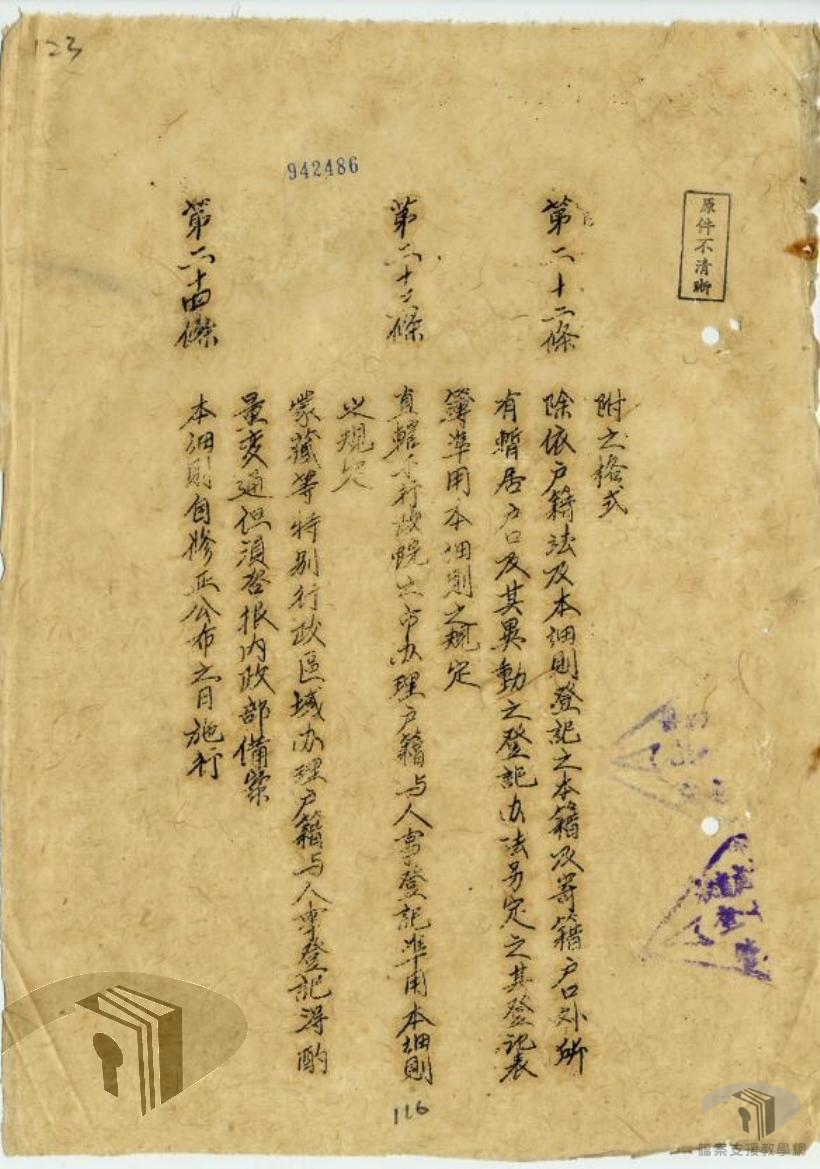 123
942486
原件不清晰
附之格式
第二十二條
除依戶籍法及本細則登記之本籍及寄籍戶口外所
有暫居戶口及其異動之登記办法另定之其登記表
簿準用本細則之規定
第二十三條
直轄于行政院之市办理戶籍与人事登記準用本細則
之規定
蒙藏等特别行政區域办理戶籍与人事登記得酌
量变通但須咨报内政部備案
第二十四條
本細則自修正公布之日施行
116
檔案支援教學網